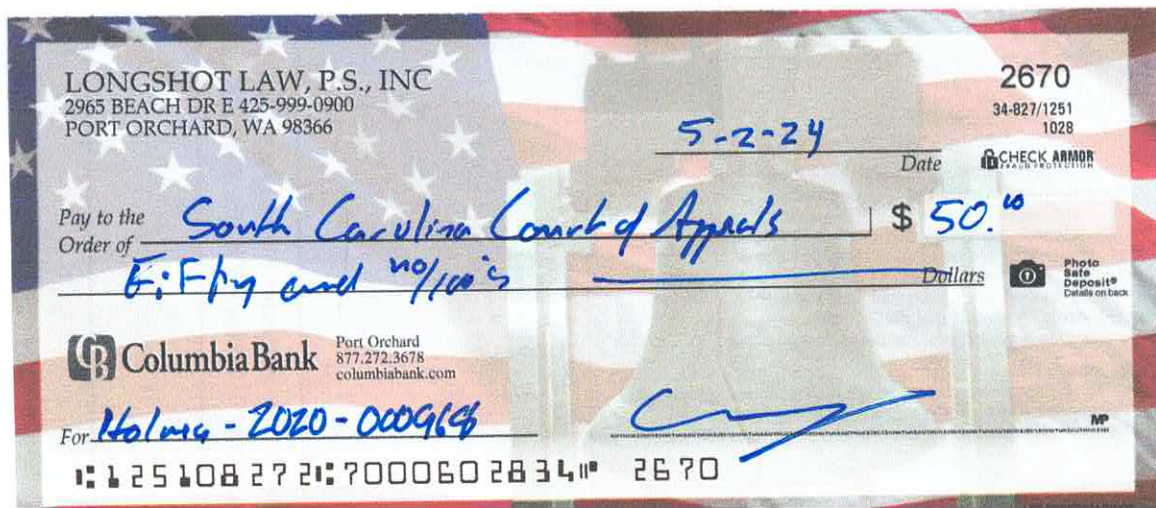 LONGSHOT LAW, P.S., INC
2965 BEACH DR E 425-999-0900
PORT ORCHARD, WA 98366
2670
34-827/1251
1028
5-2-24
Date
CHECK ARMOR
FRAUD PROTECTION
Pay to the
Order of South Carolina Court of Appeals $ 50.00
and no/100's Dollars
Photo
Safe
Deposit®
Details on back
Columbia Bank
Port Orchard
877.272.3678
columbiabank.com
For - 2020 -
MP
⑆125108272⑆7000602834⑈ 2670